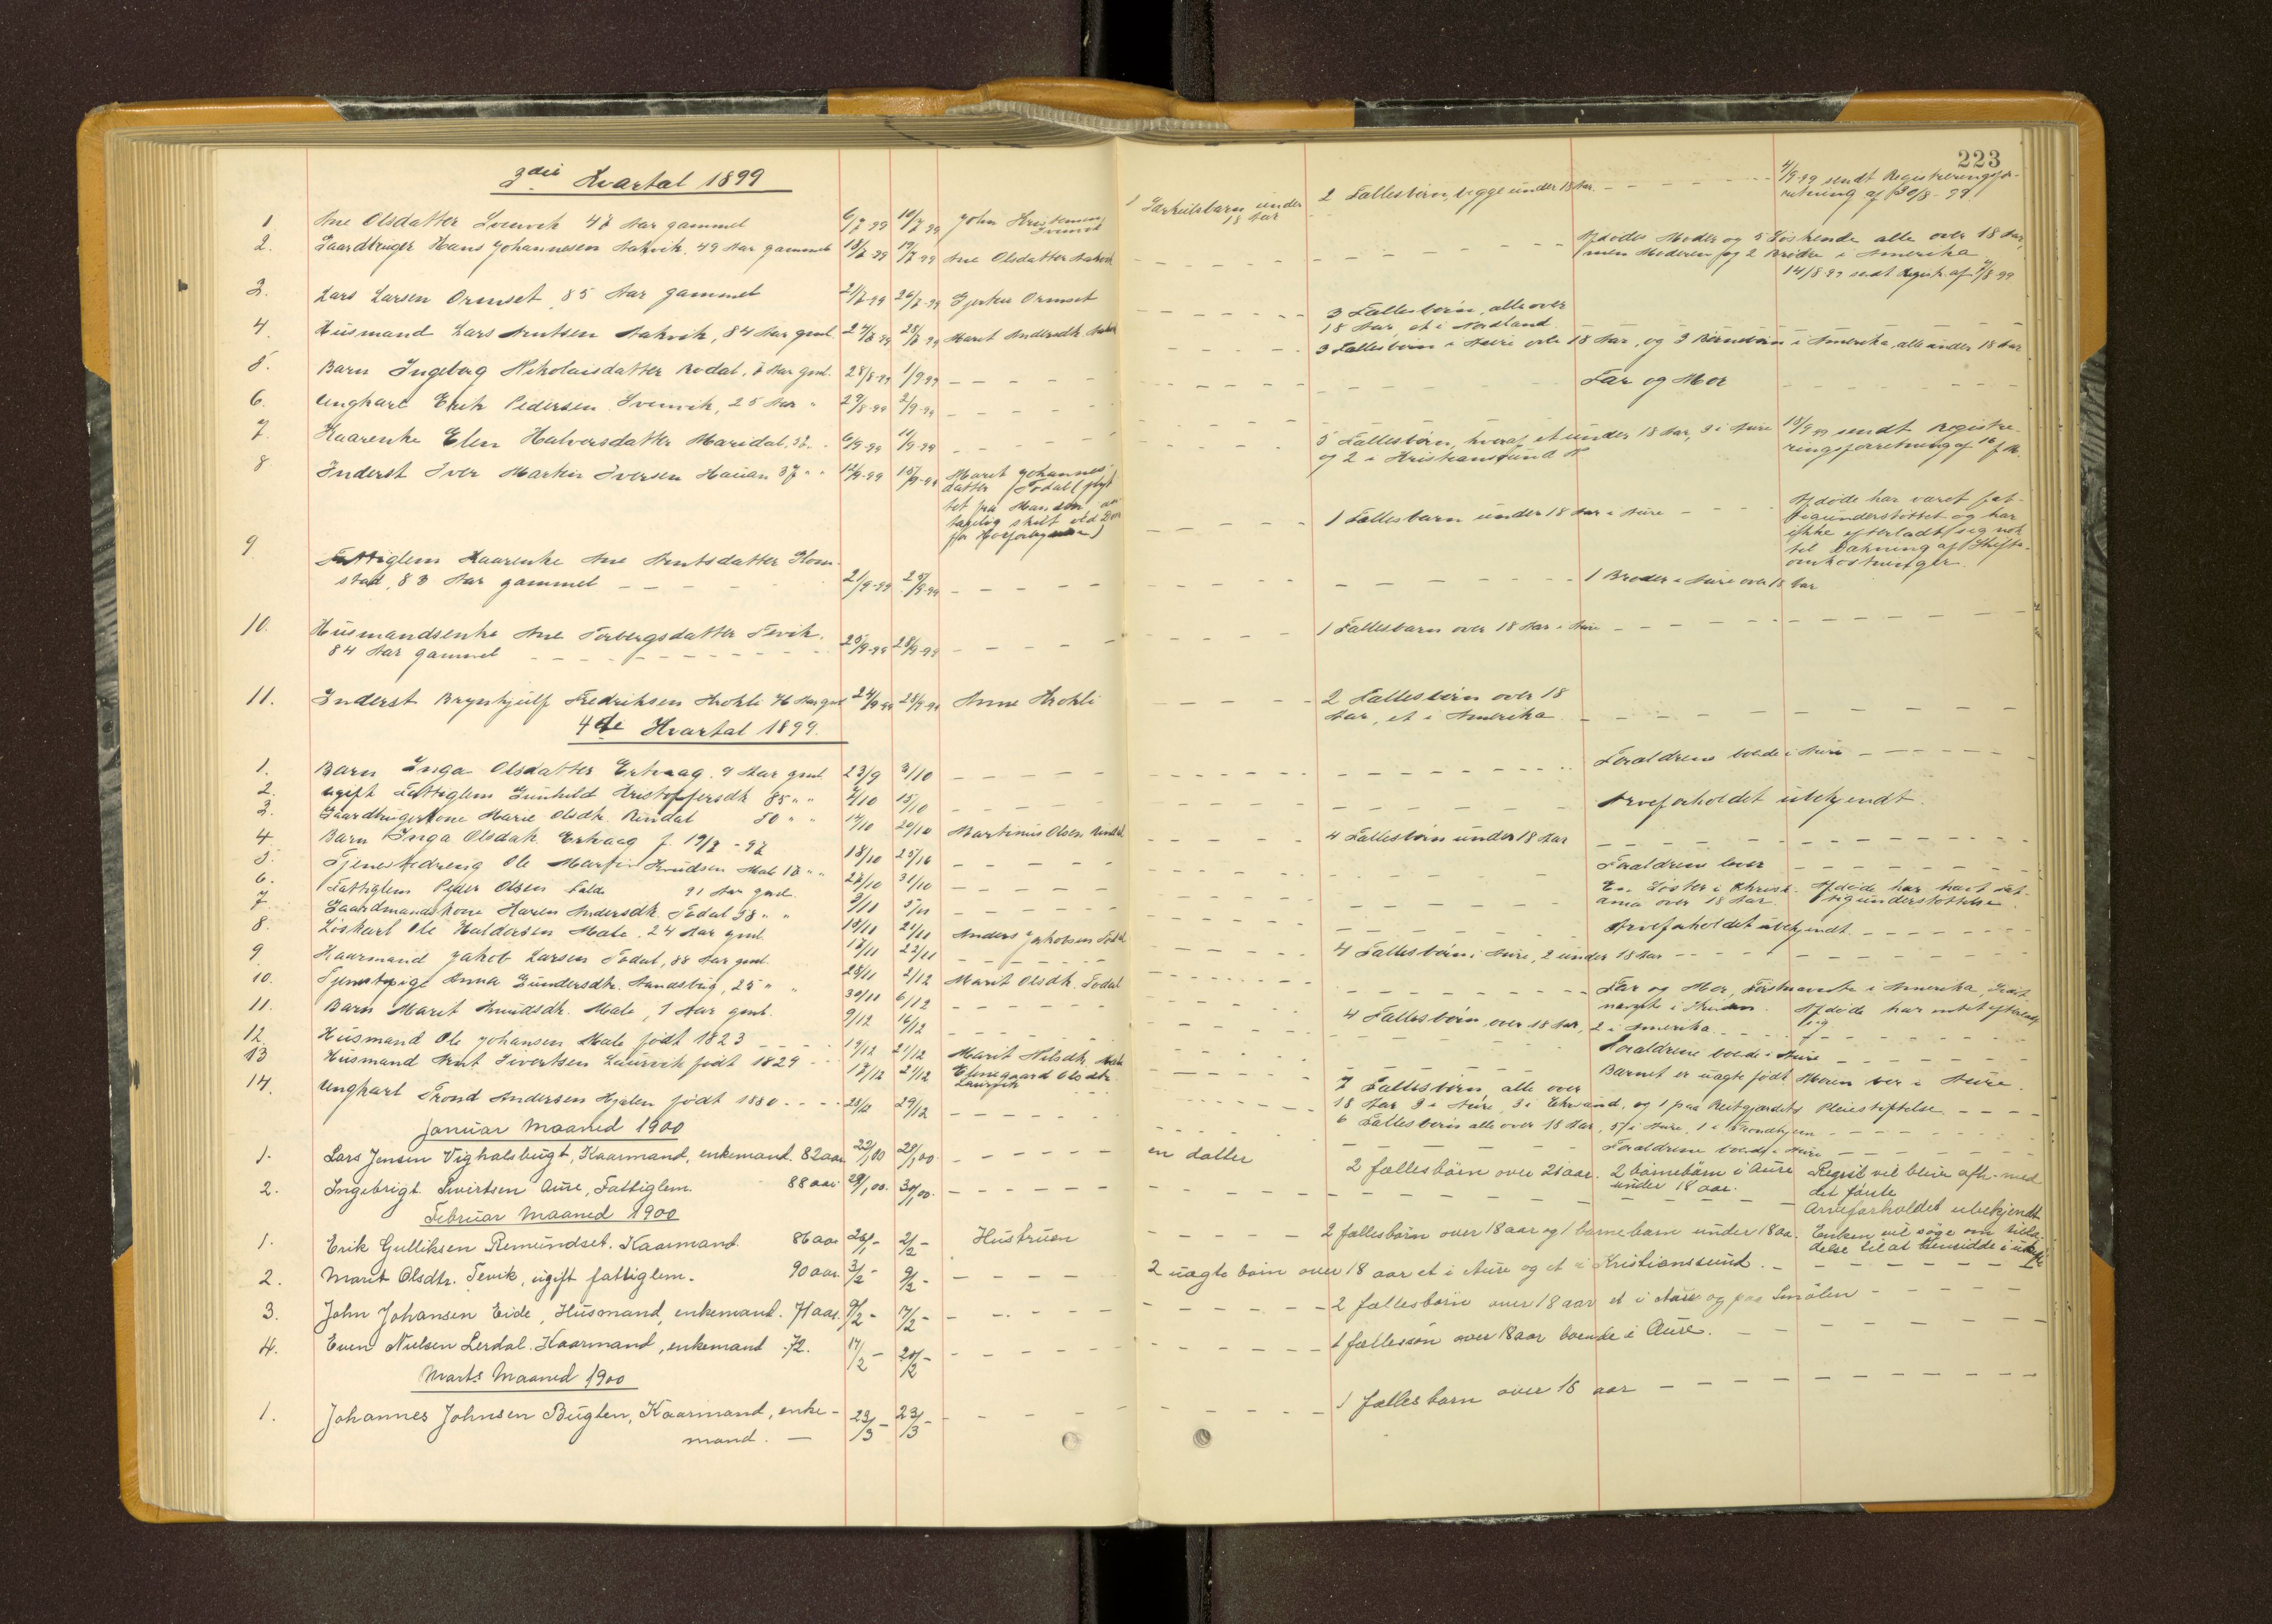 223
3die Kvartal 1899
1. Ane Olsdatter Svenvik 47 Aar gammel 6/7 99 10/7 99 John Kristensen Svenvik 1 Særkulsbarn under 18 Aar 2 Fællesbørn, begge under 18 Aar. 4/9 99 sendt Registreringsfor-
retning af 30/8-99
2. Gaardbruger Hans Johannesen Aakvik, 49 Aar gammel 13/7-99 17/7-99 Ane Olsdatter Aakvik Afdødes Moder og 5 Søskende alle over 18 Aar,
men Moderen og 2 Brødre i Amerika
14/8 99 sendt Registr. af 7/8 99
3. Lars Larsen Ormset 85 Aar gammel 21/7-99 26/7-99 Gjertru Ormset 3 Fællesbørn, alle over
18 Aar, et i Nordland
4. Husmand Lars Arntsen Aakvik, 84 Aar gml. 24/7-99 28/7 99 Marit Andersdtr. Aakvik 3 Fællesbørn i Aure over 18 Aar, og 3 Børnebørn i Amerika, alle under 18 Aar
5. Barn Ingeborg Nikolaisdatter Rodal, 7 Aar gml. 28/8-99 1/9 99 Far og Mor
6. Ungkarl Erik Pedersen Svenvik, 25 Aar " 29/8-99 2/9-99
7. Kaarenke Elen Halvorsdatter Mæridal, 6/9-99 11/9-99 5 Fællesbørn, hvoraf et under 18 Aar, 3 i Aure
og 2 i Kristiansund N 18/9 99 sendt Registre-
ringsforretning af 16 f. M.
8 Inderst Iver Martin Iversen Hauan 37 " " 12/9-99 15/9-99 Marit Johannes-
datter Todal (flyt-
tet fra Manden
skilt ved
for
1 Fællesbarn under 18 Aar i Aure Afdøde har været fat-
tigunderstøttet og har
ikke efterladt sig nok
til Dækning af Skifte-
omkostninger.
9. Fattiglem Kaarenke Ane Arntsdatter
stad, 83 Aar gammel 21/9-99 25/9-99 1 Broder i Aure over 18 Aar
10. Husmandsenke Ane Torbergsdatter Tevik.
84 Aar gammel 25/9-99 28/9-99 1 Fællesbarn over 18 Aar i Aure
11. Inderst Brynhjulf Fredriksen Krokli 76 Aar gml 24/9-99 28/9-99 Anne Krokli 2 Fællesbørn over 18
Aar, et i Amerika
4de Kvartal 1899.
1. Barn Inga Olsdatter Ertvaag. 9 Aar gml 23/9 3/10 Forældrene boende i Aure
2. ugift Fattiglem Gunhild Kristoffersdtr. 85 " " 7/10 15/10 Arveforholdet ubekjendt.
3. Gaardbrugerkone Marie Olsdtr. Rindal 50 " " 14/10 20/10 Martinus Olsen Rindal 4 Fællesbørn under 18 Aar
4 Barn Inga Olsdatr. Ertvaag f. 19/7-97 18/10 25/10 Forældrene lever
5. Tjenestedreng Ole Martin Knudsen Male 17 " " 27/10 31/10 En Søster i Kristi-
ania over 18 Aar. Afdøde har havt Fat-
tigunderstøttelse.
6. Fattiglem Peder Olsen 91 Aar gml. 3/11 5/11 Arveforholdet ubekjendt.
7. Gaardmandskone Karen Andersdtr. Todal 58 " " 15/11 21/11 Anders Jakobsen Todal 4 Fællesbørn i Aure, 2 under 18 Aar
8. Løskarl Ole Haldorsen Male. 24 Aar gml. 17/11 22/11 Far og Mor, Førstnævnte i Amerika, Sidst-
nævnte i Afdøde har intet efterladt
sig
9. Kaarmand Jakob Larsen Todal, 88 Aar gml. 25/11 2/12 Marit Olsdtr. Todal 4 Fællesbørn, over 18 Aar, 2 i Amerika
10. Tjenestepige Anna Gundersdtr. 25 " " 30/11 6/12 Forældrene boende i Aure
11. Barn Marit Knudsdtr. Male, 1 Aar gml. 9/12 16/12 Barnet er uægte født, Moren bor i Aure.
12. Husmand Ole Johansen Male født 1823 19/12 21/12 Marit Nilsdtr. Male 7 Fællesbørn, alle over
18 Aar 3 i Aure, 3 i og 1 paa Reitgjærdets Pleiestiftelse
13 Husmand Arnt Sivertsen Laurvik født 1829 17/12 21/12 Ellingaard Olsdtr.
Laurvik 6 Fællesbørn alle over 18 Aar, 5 i Aure, 1 i Trondhjem
14. Ungkarl Trond Andersen Hjelen født 1880 25/12 29/12 Forældrene boende i Aure
Januar Maaned 1900
1. Lars Jensen Vighalsbugt, Kaarmand, enkemand. 82 aar 22/1 00 29/1 00 en datter 2 fællesbörn over 21 aar. 2 börnebörn i Aure
under 18 aar. Regist vil blive afh. med
det förste
2. Ingebrigt Sivertsen Aure, Fattiglem. 88 aar 29/1 00. 30/1 00. Arveforholdet ubekjendt
Februar Maaned 1900
1. Erik Gulliksen Remundset. Kaarmand 86 aar 26/1 - 2/2 - Hustruen 2 fællesbörn over 18 aar og 1 barnebarn under 18 aa. Enken vil söge om tilla-
delse til at hensidde i uskifte
2. Marit Olsdtr. Tevik, ugift fattiglem. 90 aar. 3/2 - 9/2 - 2 uægte börn over 18 aar et i Aure og et i Kristianssund.
3. John Johansen Eide, Husmand, enkemand. 71 aar. 9/2 - 17/2 - 2 fællesbörn over 18 aar et i Aure og paa Smölen
4. Even Nielsen Lerdal. Kaarmand, enkemand 72. 17/2 - 20/2 - 1 fællessön over 18 aar boende i Aure.
Marts Maaned 1900
1. Johannes Johnsen Buglen, Kaarmand, enke-
mand. 23/3 - 23/3 - 1 fællesbarn over 18 aar